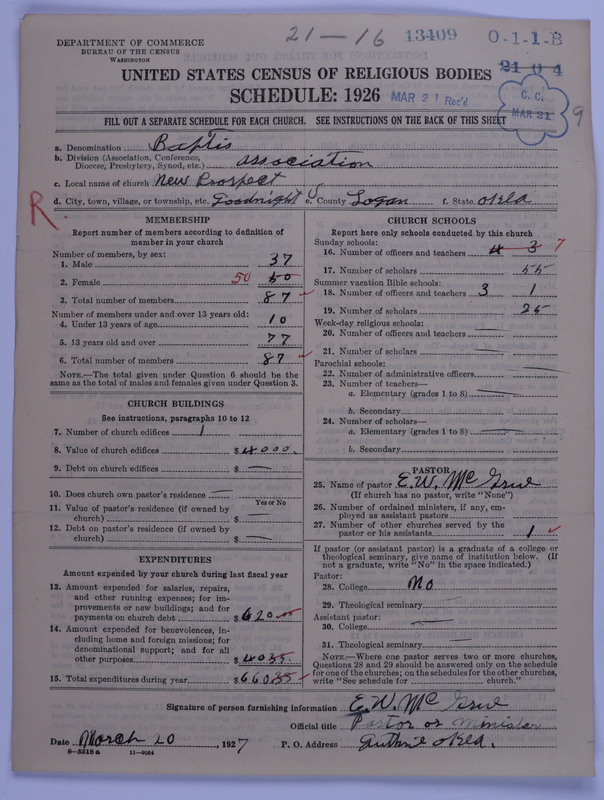 21-16 13409 0-1-1-B
DEPARTMENT OF COMMERCE
BUREAU OF THE CENSUS
WASHINGTON
2104
UNITED STATES CENSUS OF RELIGIOUS BODIES
SCHEDULE: 1926 MAR 21 Rec'd
C. C.
MAR 21
9
FILL OUT A SEPARATE SCHEDULE FOR EACH CHURCH. SEE INSTRUCTIONS ON THE BACK OF THIS SHEET
a. Denomination Baptis
b. Division (Association, Conference, Diocese, Presbytery, Synod, etc.) association
c. Local name of church New Prospect
d. City, town, village, or township, etc. Goodnight e. County Logan f. State Okla
R.
MEMBERSHIP
Report number of members according to definition of
member in your church
Number of members, by sex:
1. Male 37
2. Female 50 50
3. Total number of members 87
Number of members under and over 13 years old:
4. Under 13 years of age 10
5. 13 years old and over 77
6. Total number of members 87
NOTE.—The total given under Question 6 should be the
same as the total of males and females given under Question 3.
CHURCH BUILDINGS
See instructions, paragraphs 10 to 12
7. Number of church edifices 1
8. Value of church edifices $4000.
9. Debt on church edifices $ —
10. Does church own pastor's residence —
Yes or No
11. Value of pastor's residence (if owned by
church) $ —
12. Debt on pastor's residence (if owned by
church) $ —
EXPENDITURES
Amount expended by your church during last fiscal year
13. Amount expended for salaries, repairs,
and other running expenses; for im-
provements or new buildings; and for
payments on church debt $620.00
14. Amount expended for benevolences, in-
cluding home and foreign missions; for
denominational support; and for all
other purposes $4035
15. Total expenditures during year $66035
CHURCH SCHOOLS
Report here only schools conducted by this church
Sunday schools:
16. Number of officers and teachers 4 3 7
17. Number of scholars 55
Summer vacation Bible schools:
18. Number of officers and teachers 3 1
19. Number of scholars 25
Week-day religious schools:
20. Number of officers and teachers —
21. Number of scholars —
Parochial schools:
22. Number of administrative officers
23. Number of teachers—
a. Elementary (grades 1 to 8) —
b. Secondary
24. Number of scholars—
a. Elementary (grades 1 to 8) —
b. Secondary
PASTOR
25. Name of pastor E. W. Mc
(If church has no pastor, write "None")
26. Number of ordained ministers, if any, em-
ployed as assistant pastors
27. Number of other churches served by the
pastor or his assistants 1
If pastor (or assistant pastor) is a graduate of a college or
theological seminary, give name of institution below. (If
not a graduate, write "No" in the space indicated.)
Pastor:
28. College No
29. Theological seminary —
Assistant pastor:
30. College —
31. Theological seminary —
NOTE.—Where one pastor serves two or more churches,
Questions 28 and 29 should be answered only on the schedule
for one of the churches; on the schedules for the other churches,
write "See schedule for church."
Signature of person furnishing information E. W. Mc
Official title Pastor or Minister
Date March 20, 1927 P. O. Address Guthrie Okla.
8—5518 a 11—9034